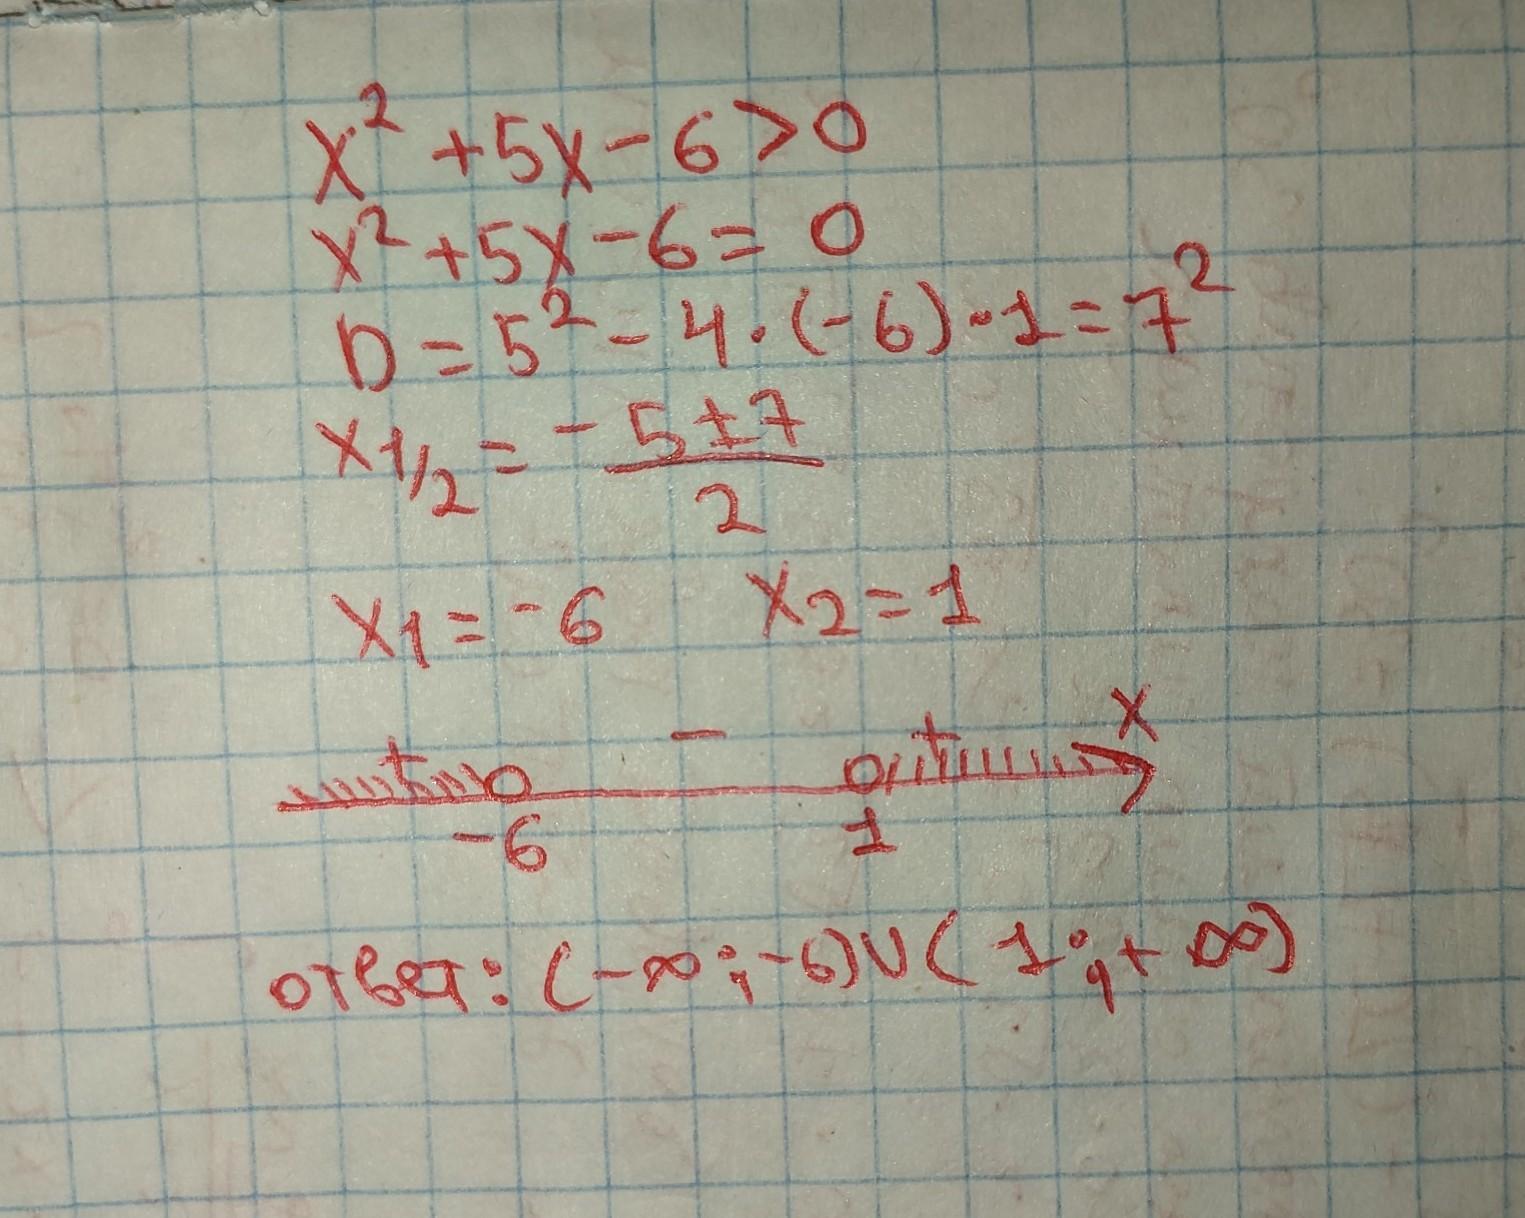 x² + 5x - 6 > 0
x² + 5x - 6 = 0
D = 5² - 4 · (-6) · 1 = 7²
x1/2 = - 5 ± 7 / 2
x1 = -6 x2 = 1
+ - + x
-6 1
ответ: (-∞; -6) ∪ (1; +∞)